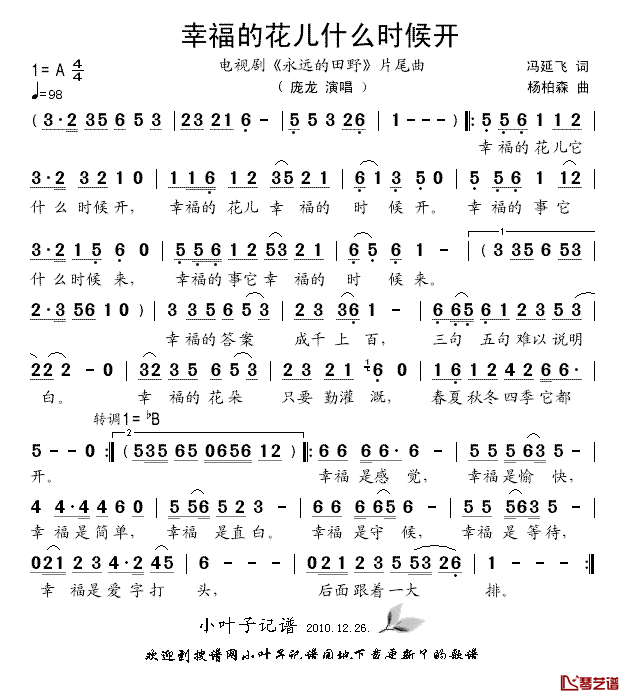 幸福的花儿什么时候开
1=A 4/4
电视剧《永远的田野》片尾曲
冯延飞 词
♩=98
（庞龙 演唱）
杨柏森 曲
(3·2 35 65 3 | 23 21 6 - | 5 5 3 26 | 1 - - -) ‖: 5 56 1 1 2 |
幸福的花儿它
3·2 32 1 0 | 1 1 6 1 2 35 21 | 6 1 3 50 | 5 56 1 12 |
什么时候开， 幸福的 花儿 幸福的 时 候开。 幸福的事它
3·2 1 5 6 0 | 5 56 12 53 21 | 6·5 6 1 - | (3 35 6 53 |
什么时候 来， 幸福的事它幸福的 时 候来。
2·3 56 10) | 3 35 6 53 | 2 2 36 1 - | 6 65 6 1 2 35 3 |
幸福的答案 成千上百， 三句 五句难以说明
22 2 - 0 | 32 35 6 53 | 2 2 12 6 0 | 16 12 42 66 |
白。 幸 福的花朵 只要 勤灌 溉， 春夏秋冬四季它都
转调1=♭B
5 - - 0 :‖ (535 65 0656 12) ‖: 6 6 66·6 | 5 5 56 3 |
开。 幸福 是感觉， 幸福是愉快，
4 4·4 6 0 | 5 56 5 1 | 6 6 66 5 | 5 5 56 3 5 |
幸福是简单， 幸福 是直白。 幸福是守候， 幸福是等待，
021 23 4·2 45 | 1 6 - - | 021 22 5 53 26 | 1 - - - :‖
幸 福是爱字打 头， 后面跟着一大 排。
小叶子记谱 2010.12.26.
欢迎到搜谱网小叶子记谱园地下音更新个的歌谱
琴艺谱